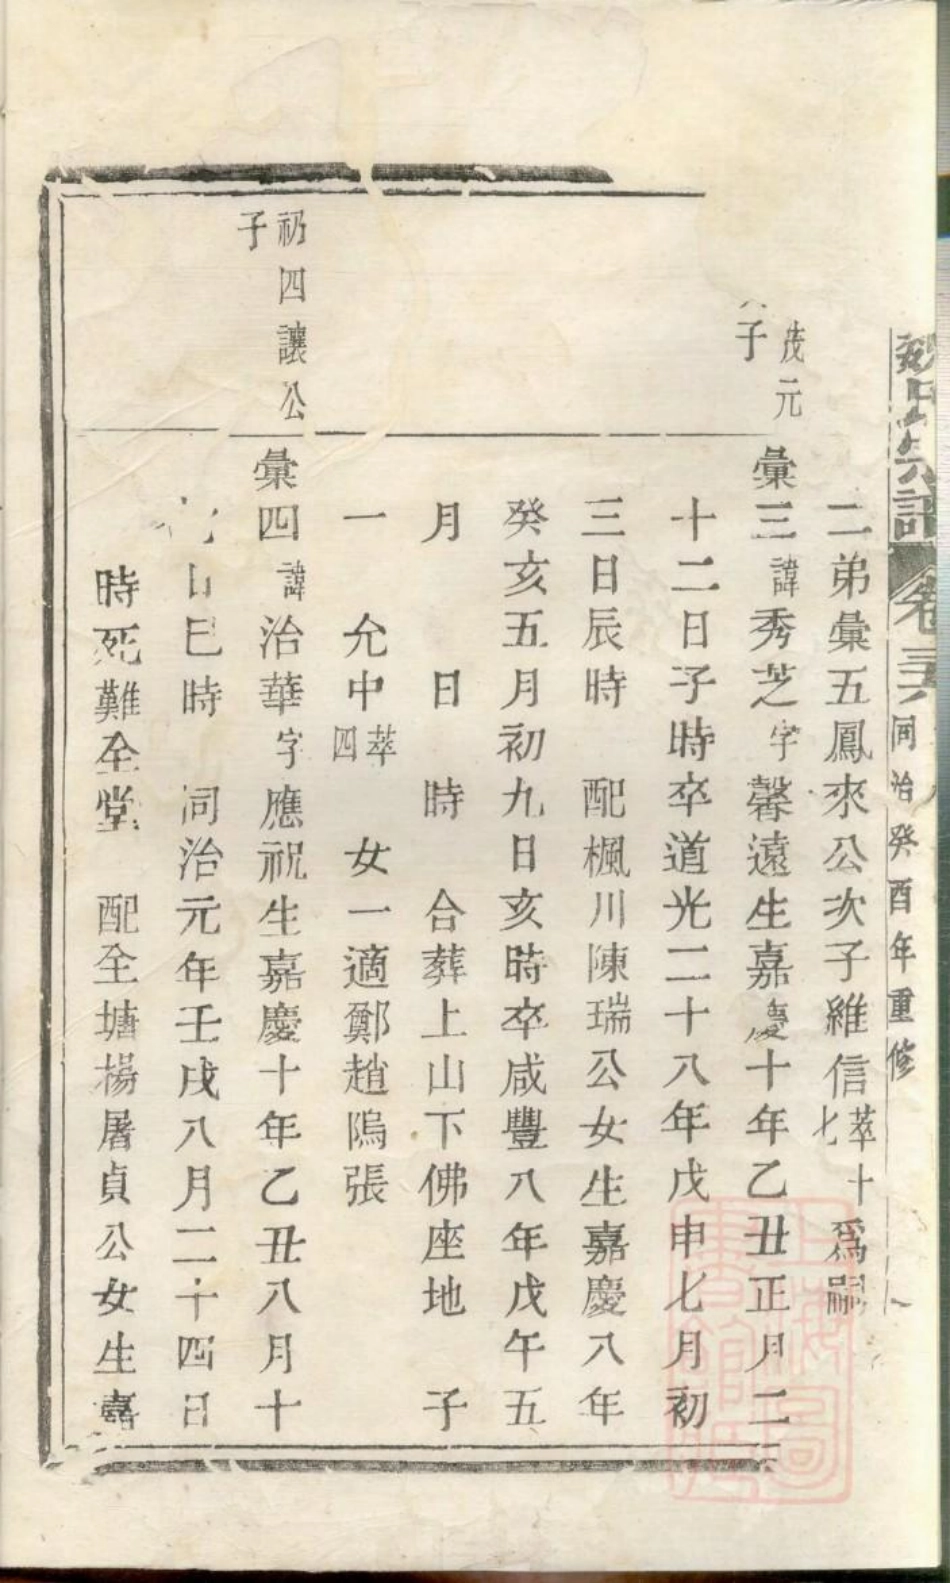 氏宗譜
卷三六
同治癸酉年重修
二弟彙五鳳來公次子維信萃十七爲嗣
茂元
子
彙三諱秀芝字馨遠生嘉慶十年乙丑正月二
十二日子時卒道光二十八年戊申七月初
三日辰時 配楓川陳瑞公女生嘉慶八年
癸亥五月初九日亥時卒咸豐八年戊午五
月 日 時 合葬上山下佛座地 子
一 允中萃四 女一適鄭趙隖張
礽四讓公
子
彙四諱治華字應祝生嘉慶十年乙丑八月十
日巳時 同治元年壬戌八月二十四日
時死難全堂 配全塘楊屠貞公女生嘉
上海圖書館藏